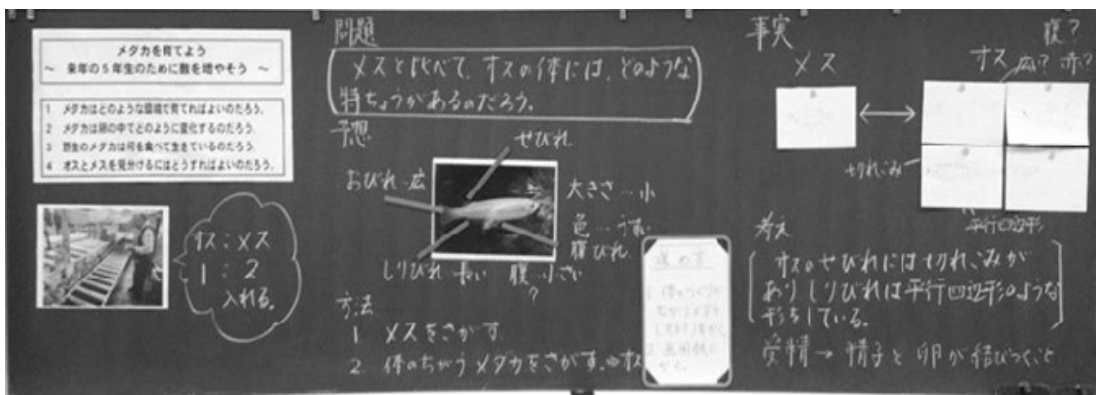 メダカを育てよう
～ 来年の5年生のために数を増やそう ～
1 メダカはどのような環境で育てればよいのだろう。
2 メダカは卵の中でどのように変化するのだろう。
3 野生のメダカは何を食べて生きているのだろう。
4 オスとメスを見分けるにはどうすればよいのだろう。
オス:メス
1 : 2
入れる。
問題
メスと比べて、オスの体には、どのような
特ちょうがあるのだろう。
予想
せびれ
おびれ…広
大きさ…小
色…うすい
腹びれ
しりびれ 長い
腹 小さい
?
方法
1 メスをさがす。
2 体のちがうメダカをさがす。⇒オス
事実
メス
オス
腹?
広? 赤?
切れこみ
平行四辺形
考え
オスのせびれには切れこみが
あり、しりびれは平行四辺形のような
形をしている。
受精 → 精子と卵が結びつくこと